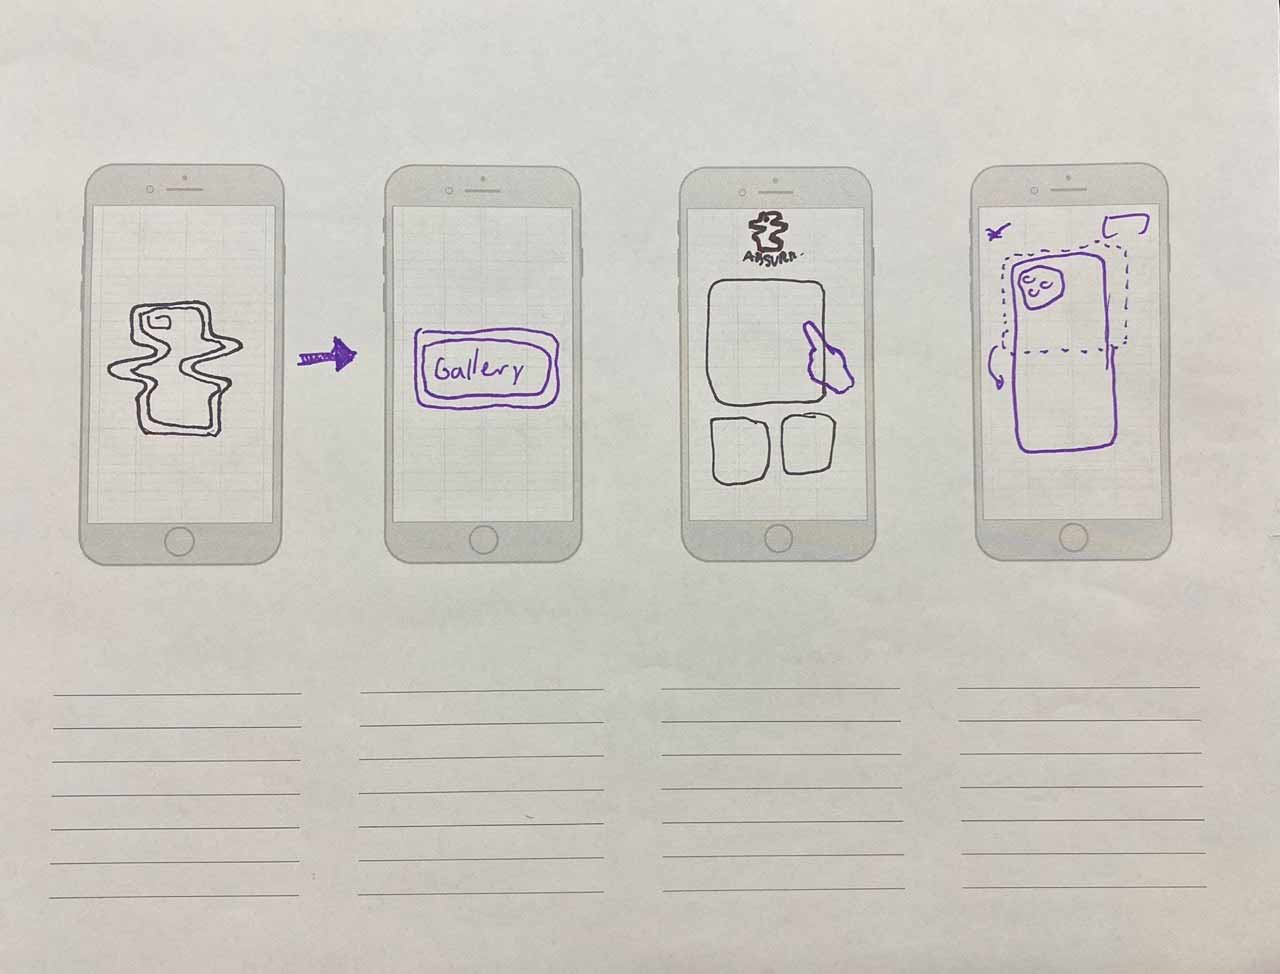 Gallery
ABSURD.